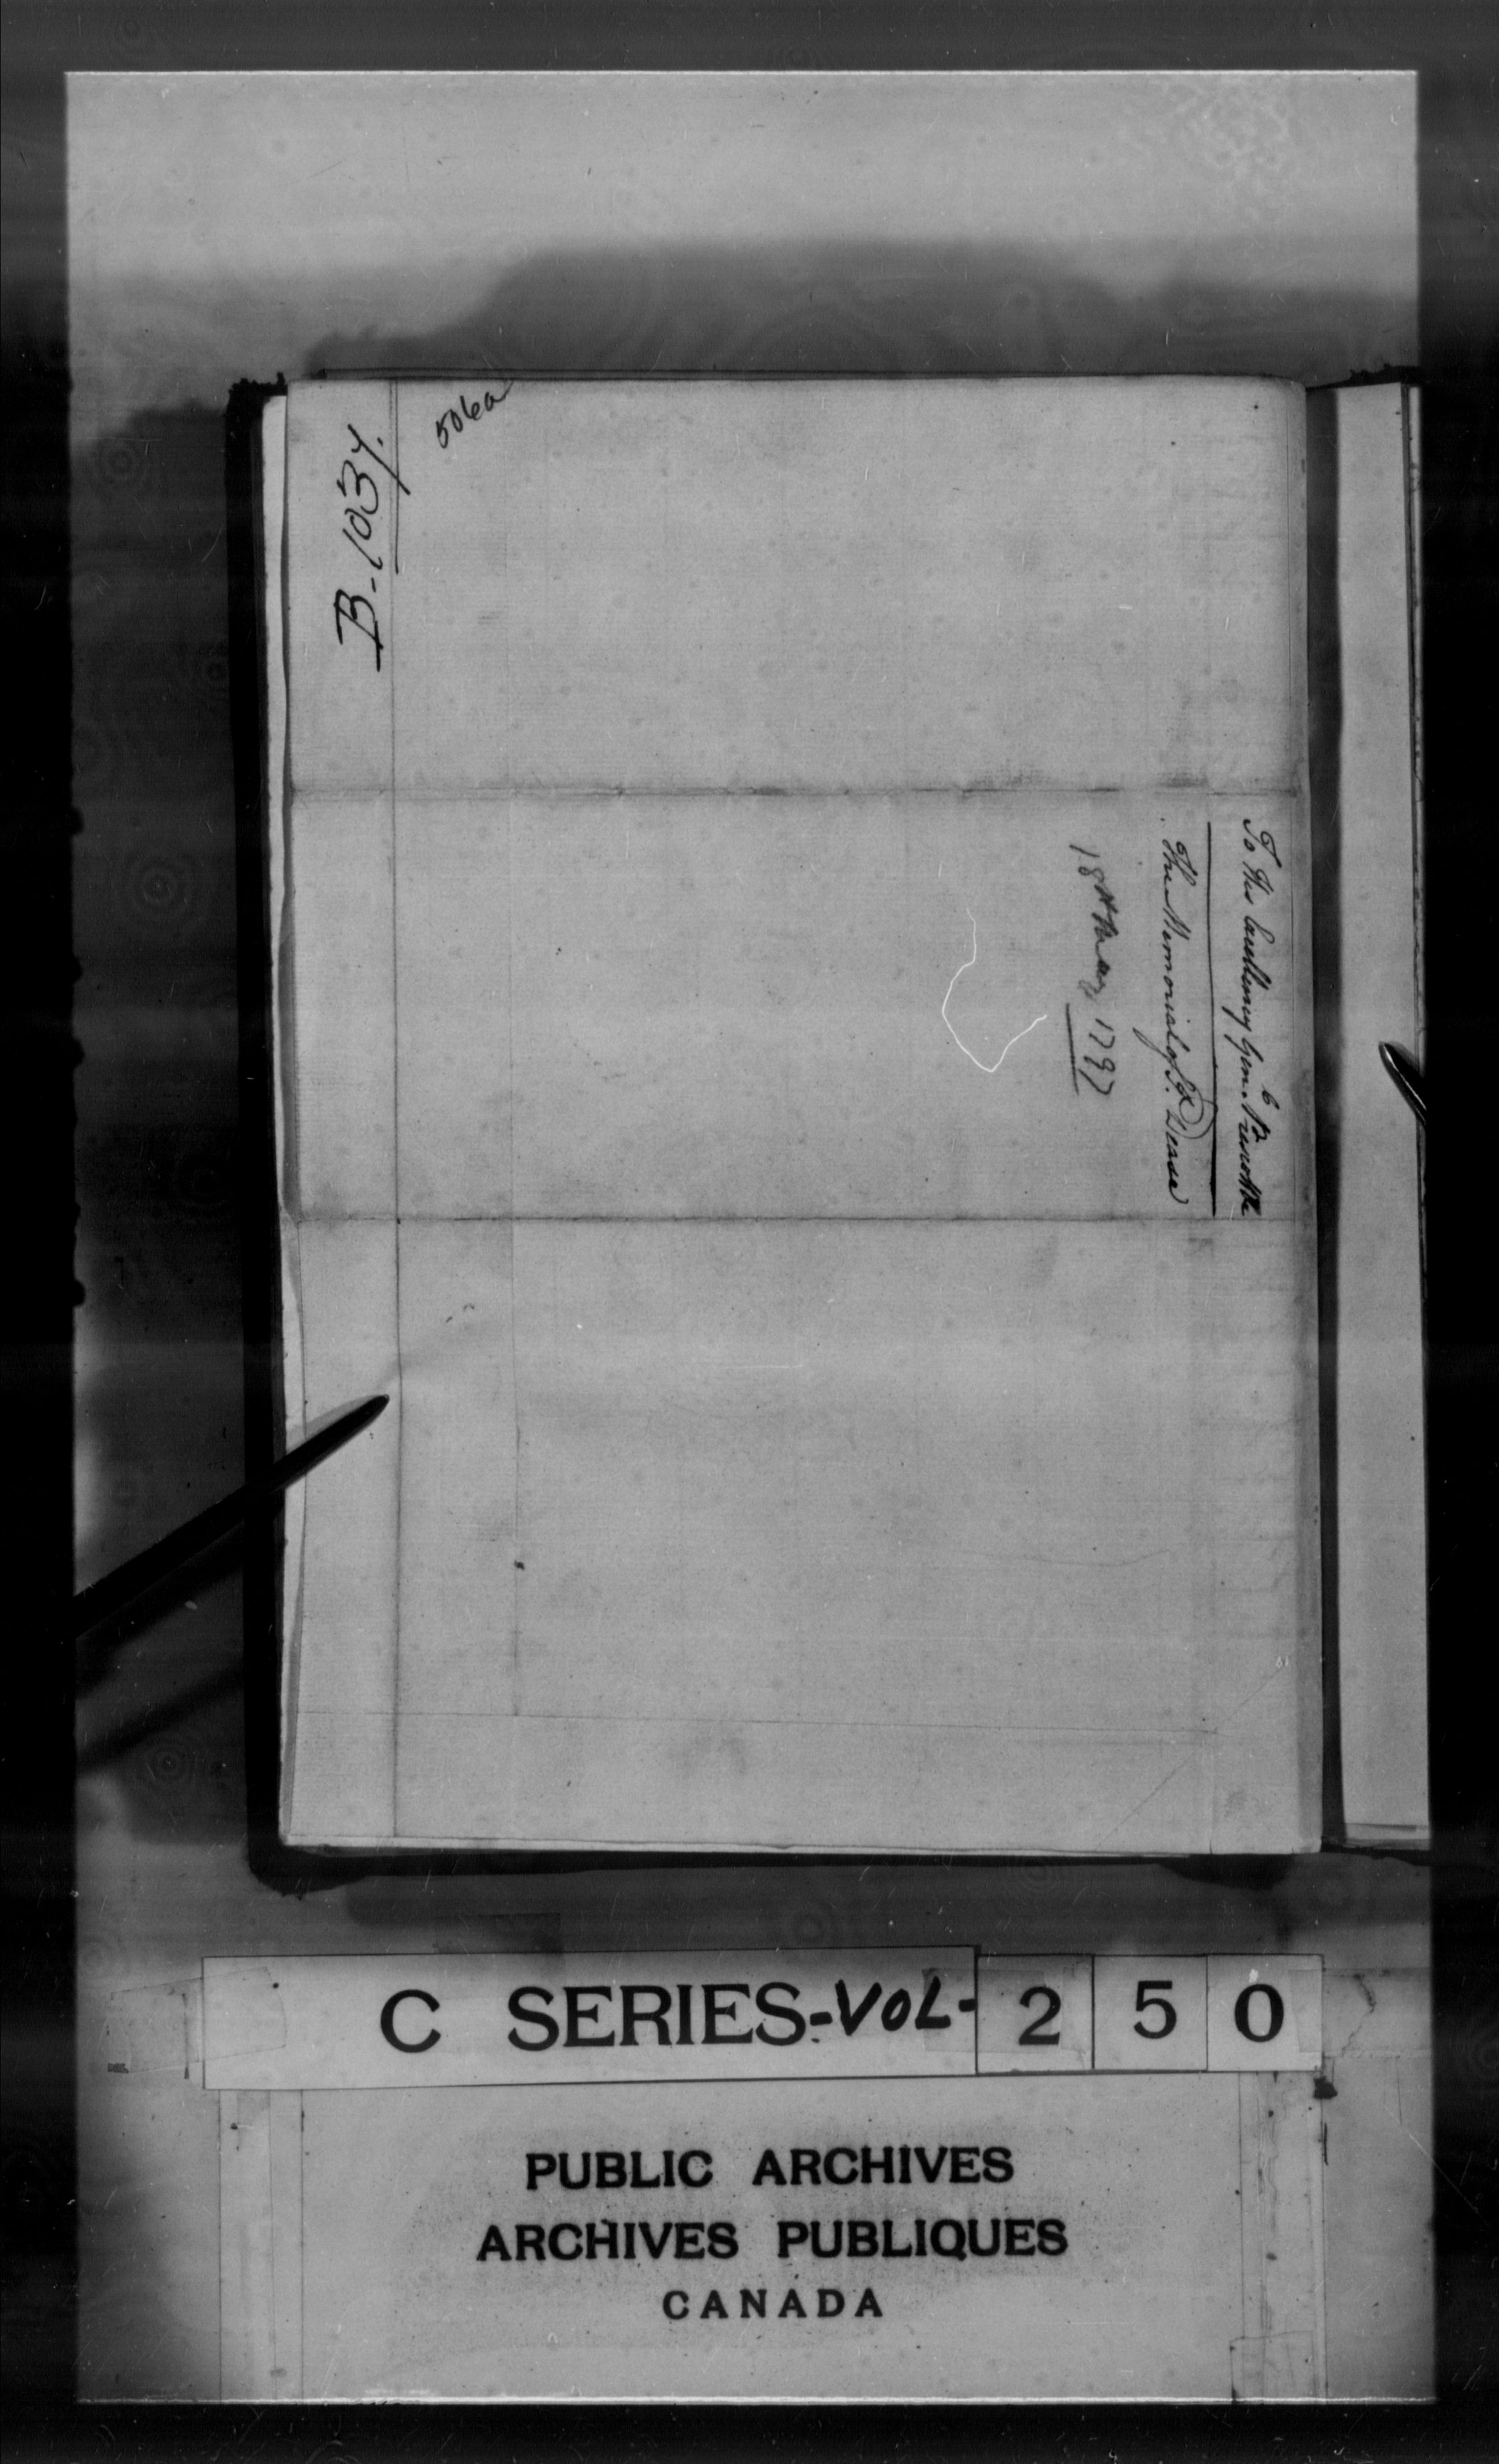 B-1037.
506a
To His Excellency Gen. Prescott &c
The Memorial of J. Dease
18th May 1797
C SERIES-VOL-250
PUBLIC ARCHIVES
ARCHIVES PUBLIQUES
CANADA